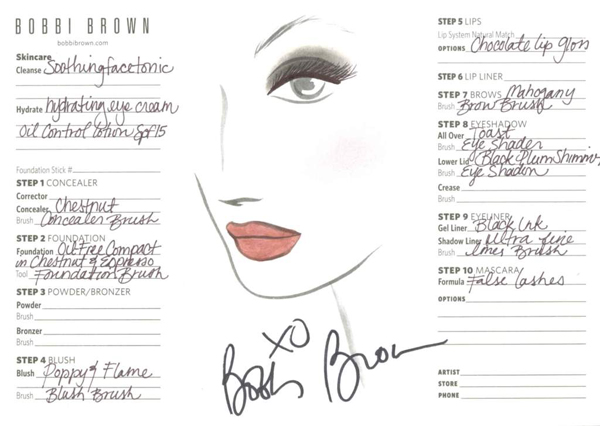 BOBBI BROWN
bobbibrown.com
Skincare
Cleanse Soothing face tonic
Hydrate hydrating eye cream
Oil Control lotion Spf 15
Foundation Stick #
STEP 1 CONCEALER
Corrector
Concealer Chestnut
Brush Concealer Brush
STEP 2 FOUNDATION
Foundation Oil Free Compact
in Chestnut & Espresso
Tool Foundation Brush
STEP 3 POWDER/BRONZER
Powder
Brush
Bronzer
Brush
STEP 4 BLUSH
Blush Poppy & Flame
Brush Blush Brush
XO
Bobbi Brown
STEP 5 LIPS
Lip System Natural Match
OPTIONS Chocolate lip gloss
STEP 6 LIP LINER
STEP 7 BROWS Mahogany
Brush Brow Brush
STEP 8 EYESHADOW
All Over Toast
Brush Eye Shader
Lower Lid Black Plum Shimmer
Brush Eye Shadow
Crease
Brush
STEP 9 EYELINER
Gel Liner Black Ink
Shadow Liner ultra fine
Brush liner Brush
STEP 10 MASCARA
Formula False lashes
OPTIONS
ARTIST
STORE
PHONE